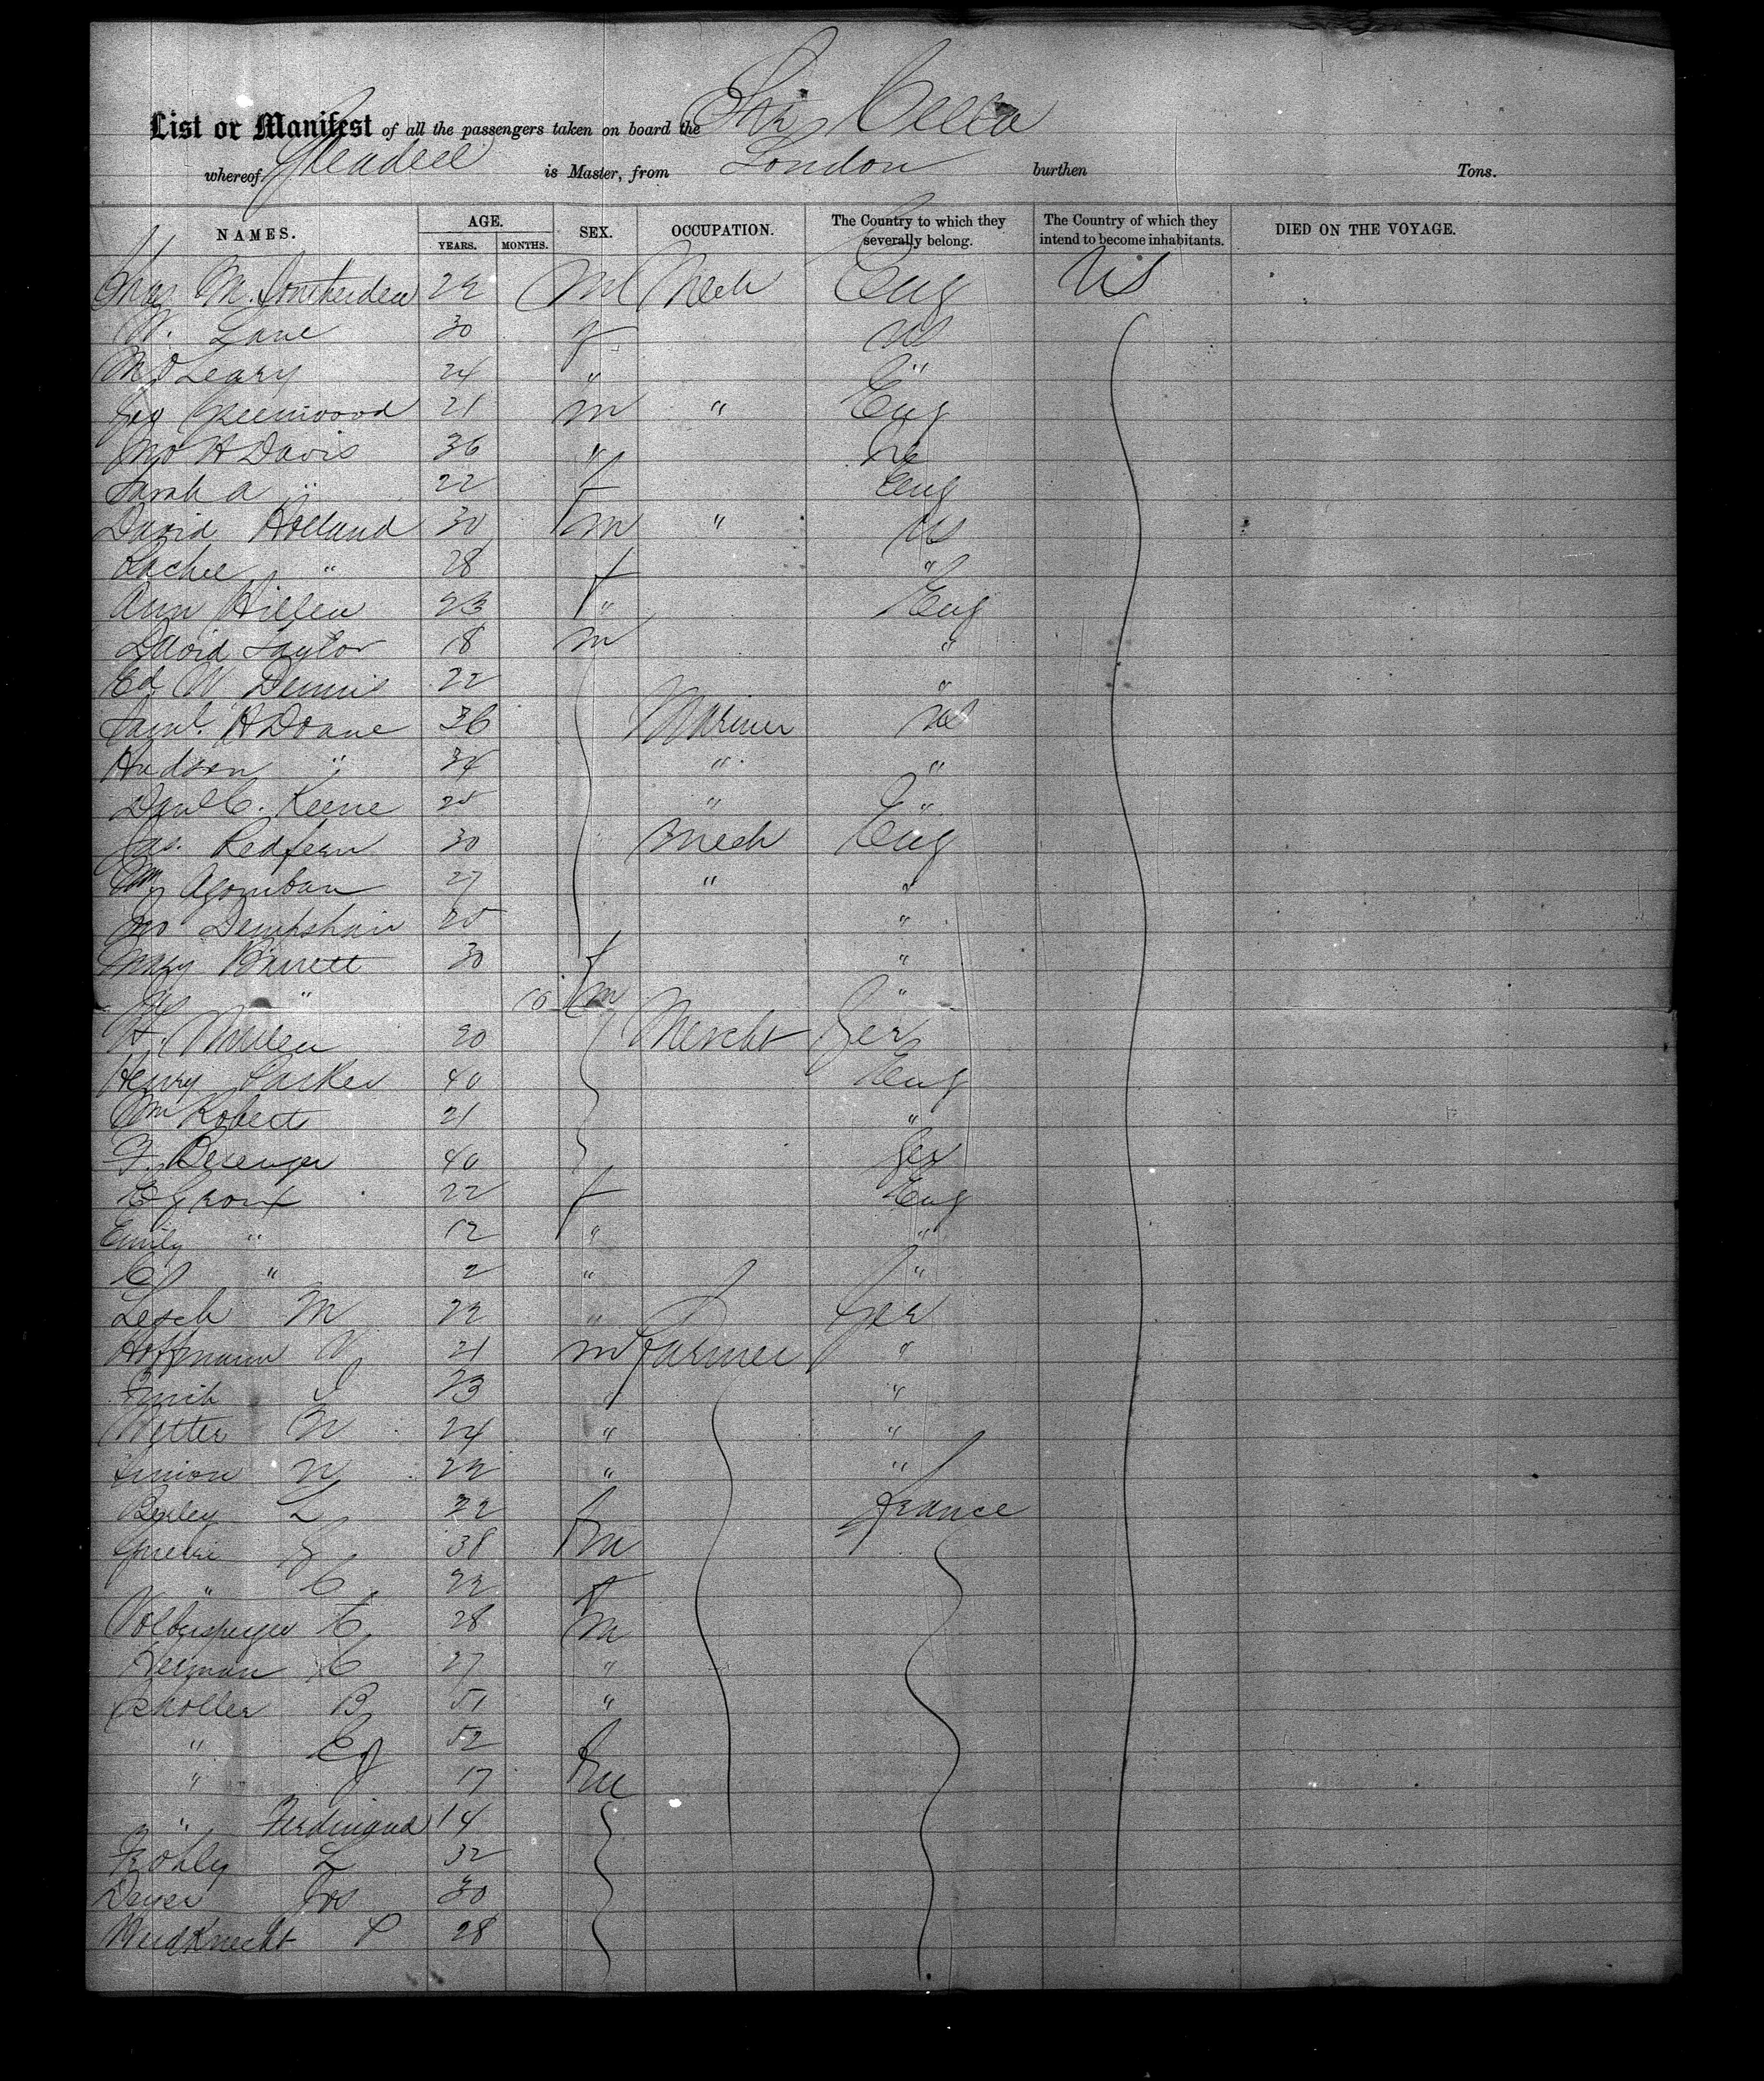 List or Manifest of all the passengers taken on board the Str Cella
whereof Gleadell is Master, from London burthen Tons.
NAMES. AGE. YEARS. MONTHS. SEX. OCCUPATION. The Country to which they severally belong. The Country of which they intend to become inhabitants. DIED ON THE VOYAGE.
Chas M. 22 M Mech Eng US
W. Lane 30 f US
M O Leary 24 " "
Geo Greenwood 21 m " Eng
Jno H Davis 36 " US
Sarah A " 22 f Eng
David Holland 30 m " US
Rachel " 28 f "
Ann Hillen 23 " Eng
David Taylor 18 m "
Ed W Dennis 22 "
Saml. H Doane 36 Mariner US
Hudson " 34 " "
Danl C. Keene 25 " "
Jas. Redfern 30 Mech Eng
Wm Agomban 27 " "
Jno 25 "
Mary Barrett 30 f "
" 10 m "
H. 20 Mercht Ger
Henry Parker 40 Eng
Wm Roberts 21 "
F. Berenger 40 Ger
E 22 f Eng
Emily " 12 " "
" 2 " "
Lesch M 22 " Ger
Hoffmann 21 m Farmer "
23 " "
Wetter W 24 " "
Simon N 22 " "
Bexley L 22 f France
38 m
" C 22 f
C 28 m
Herman C 27 "
Scholler B 51 "
" 52 f
" 17 m
" Ferdinand 14
Frohly L 32
Deyer Jos 30
Weidknecht P 28